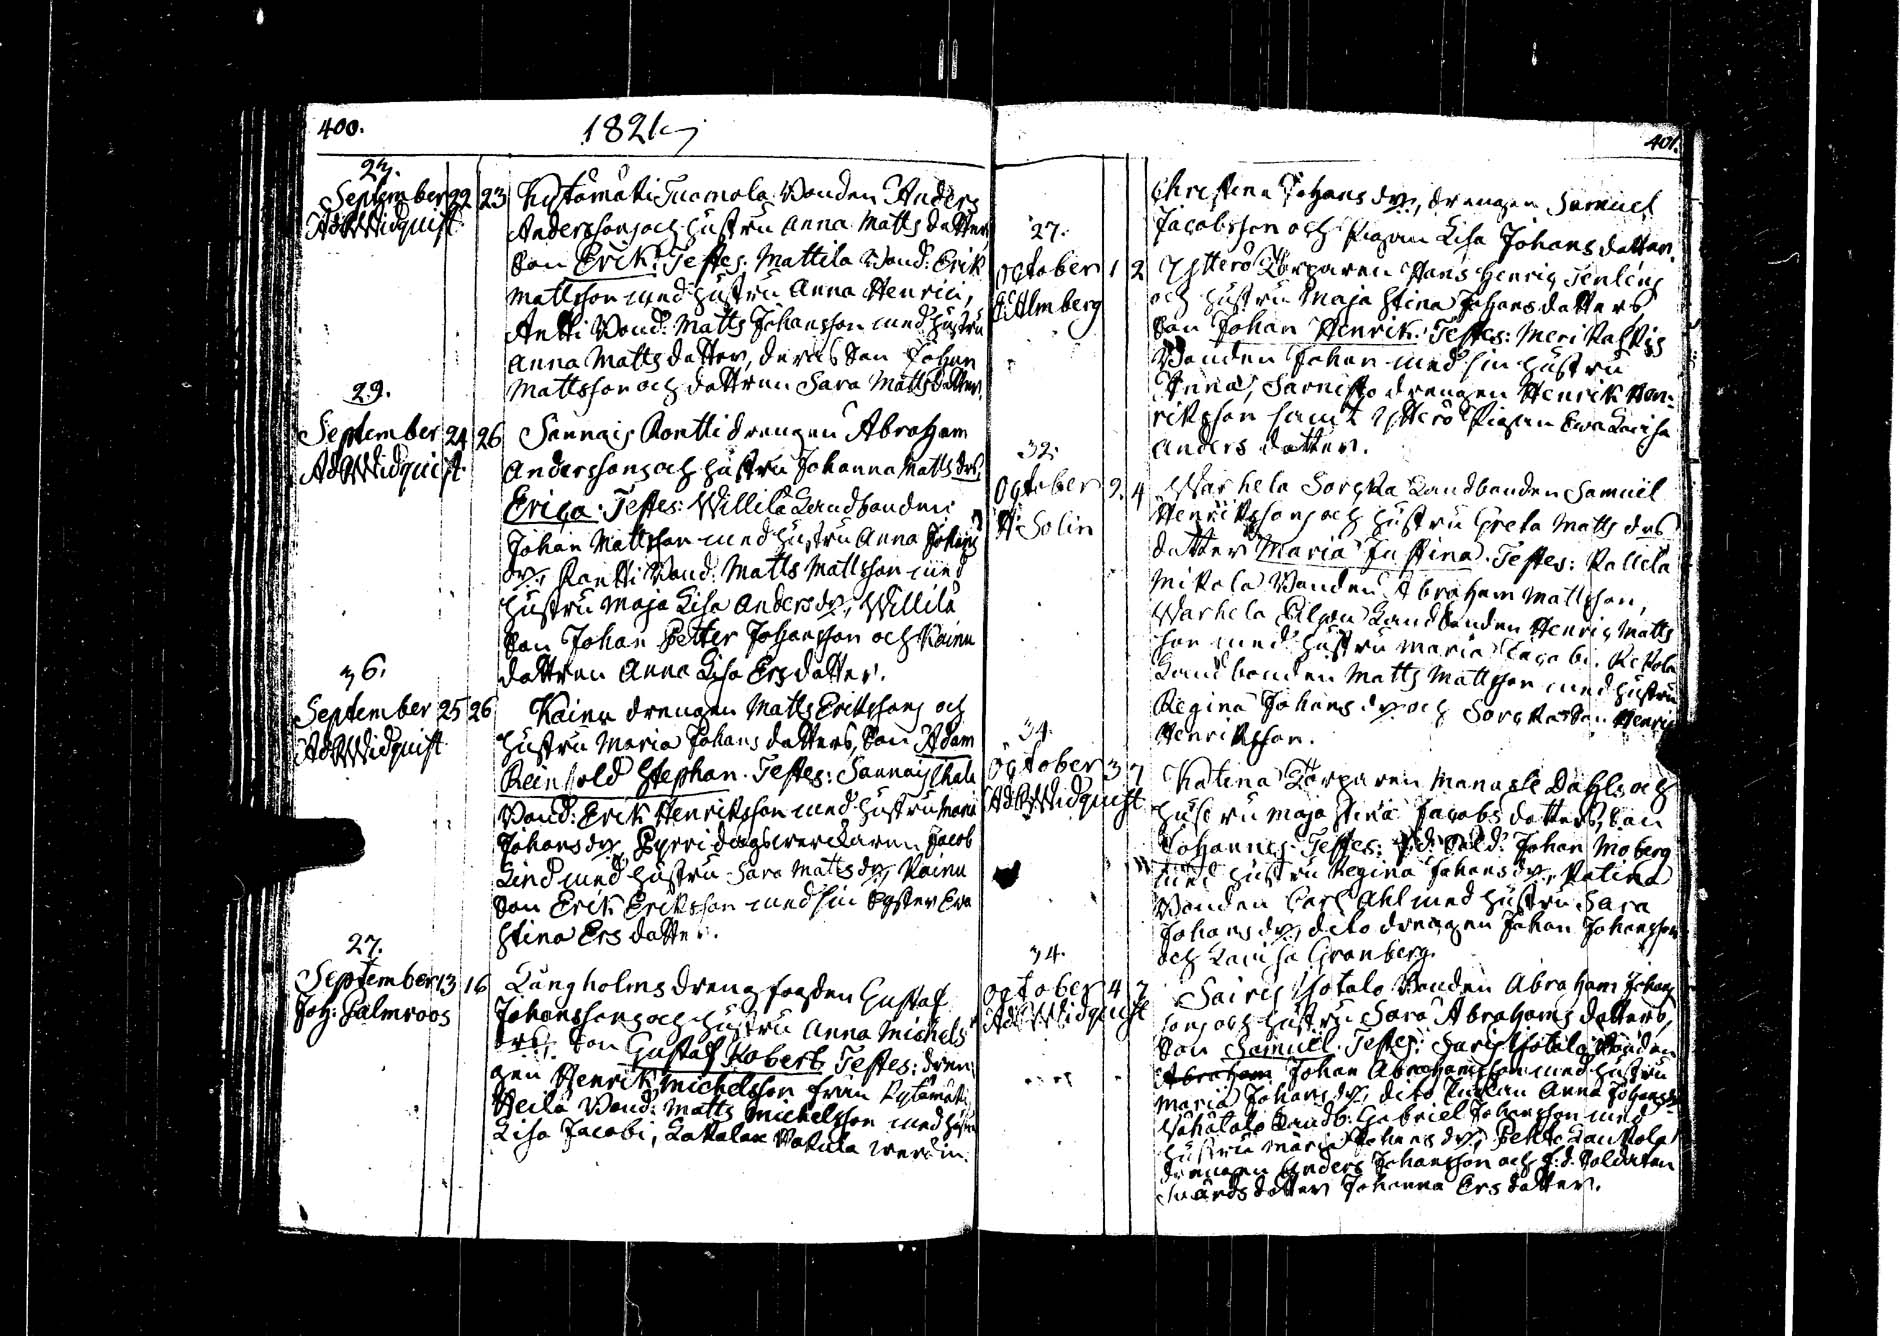 400.
1821
23.
September 22 23 Kytömäki Tuomola Bonden Anders
Ad: Widquist
Anderssons och hustru Anna Matts datters
Son Erik. Testes: Mattila Bond: Erik
Mattsson med hustru Anna Henrici,
Antti Bond: Matts Johansson med hustru
Anna Matts datter, deras Son Johan
Mattsson och dottren Sara Mattsdatter.
29.
September 24 26 Sannais Rontti drengen Abraham
Ad: Widquist
Anderssons och hustru Johanna Matts drs.
Erica. Testes: Willilä Landbonden
Johan Mattsson med hustru Anna Johans
dr, Rantti Bond: Matts Mattsson med
hustru Maja Lisa Anders dr, Willilä
Son Johan Petter Johansson och Kainu
dottren Anna Lisa Ersdatter.
36.
September 25 26 Kainu drengen Matts Erikssons och
Ad: Widquist
hustru Maria Johans datters, Son Adam
Reinhold Stephan. Testes: Sannais
Bond: Erik Henriksson med hustru Maria
Johans dr, Pyrri dagsverckaren Jacob
Lind med hustru Sara Matts dr, Kainu
Son Erik Eriksson med sin Syster Eva
Stina Ersdatter.
27.
September 13 16 Långholms drengfogden Gustaf
Joh: Palmroos
Johanssons och hustru Anna Michels
drs. Son Gustaf Robert. Testes: dren
gen Henrik Michelsson från Kytömäki
Heilä Bond: Matts Michelsson med hustru
Lisa Jacobi,
401.
Christina Johans dr, drengen Samuel
Jacobsson och Pigan Lisa Johans datter.
27.
October 1 2 Ytterö Torparen Hans Henric Tenleng
Almberg
och hustru Maja Stina Johans datters
Son Johan Henrik. Testes: Meri
Bonden Johan med sin hustru
Anna, drengen Henrik Hen-
riksson samt Ytterö Pigan Eva Lovisa
Anders datter.
32.
October 2. 4 Warhela Sorcka Landbonden Samuel
A: Solin
Henrikssons och hustru Greta Matts drs
datter Maria Justina. Testes:
Mikola Bonden Abraham Mattsson,
Warhela Landbonden Henric Matts
son med hustru Maria Jacobi.
Landbonden Matts Mattsson med hustru
Regina Johans dr och Sorcka Son Henric
Henriksson.
34.
October 3 7 Katina Torparen Manasse Dahls och
Ad: Widquist
hustru Maja Stina Jacobs datters, Son
Johannes. Testes: f.d. Sold: Johan Moberg
med hustru Regina Johans dr, Katina
Bonden Carl Ahl med hustru Sara
Johans dr, dito drengen Johan Johansson
och Lovisa Granberg.
34.
October 4 7 Sairis Isotalo Bonden Abraham Johans
Ad: Widquist
sons och hustru Sara Abrahams datters,
Son Samuel. Testes: Saris Isotalo Bonden
Abraham Johan Abrahamsson med hustru
Maria Johans dr, dito Anna Johans dr
Wähätalo Landb: Gabriel Johansson med
hustru Maria Johans dr,
drengen Anders Johansson och f.d. Soldaten
Svärds datter Johanna Ers datter.